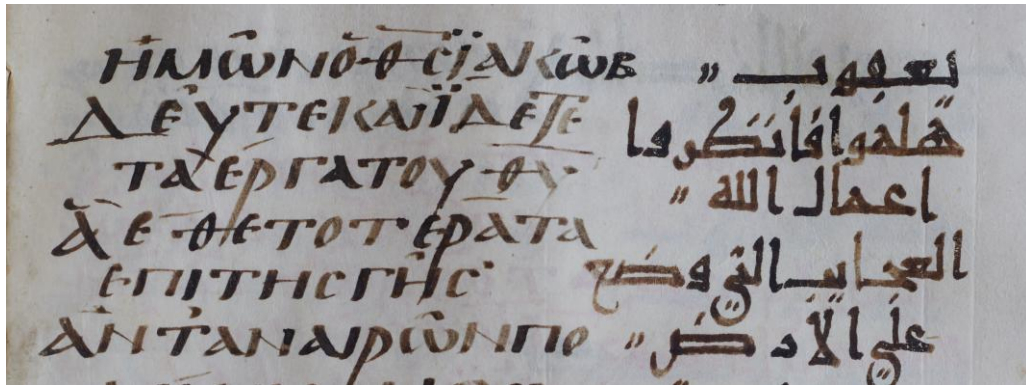 ἩΜΩ͂ΝὉΘ̅Ϲ̅ΪΑΚΩ͂Β
ΔΕΥ͂ΤΕΚΑῚΪΔΕΤΕ
ΤᾺἜΡΓΑΤΟΥΘ̅Υ̅
ἋἘΘΕΤΟΤΕΡΑΤΑ
ἘΠΙΤΗϹΓΗ͂Ϲ·
ἈΝΤΑΝΑΙΡΩ͂ΝΠΟ
يعقوب "
هَلمّوا فَأنظَروا
اعمال الله "
العجايب التي وضع
علي الأرض "